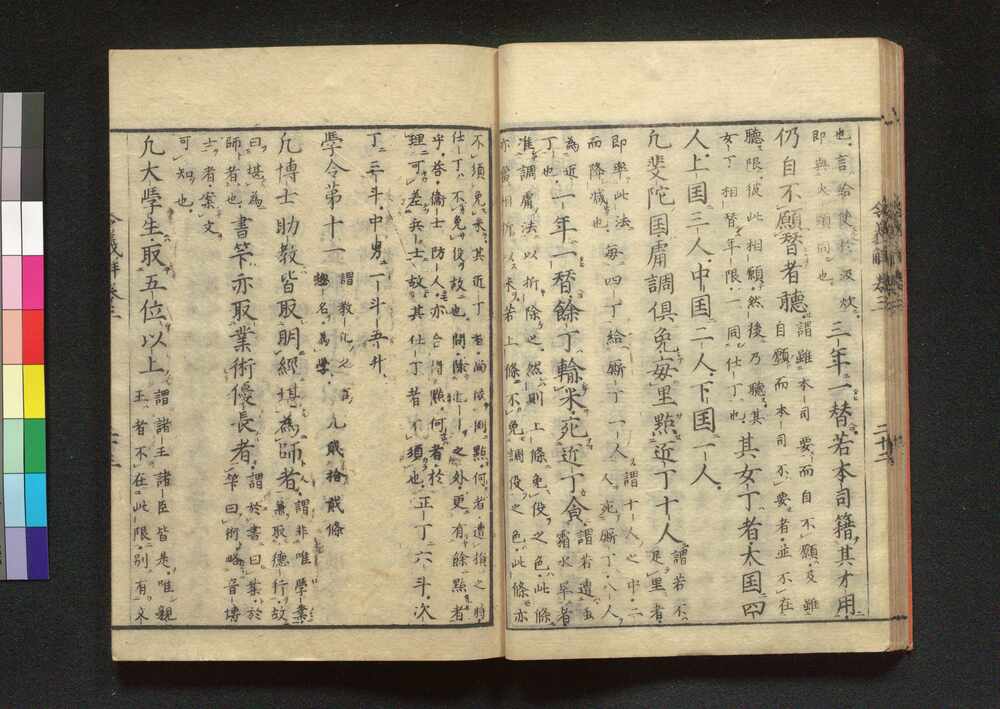 也言給使於汲炊
即與火頭同也
三年一替若本司籍其才用
仍自不願替者聽
謂雖本司要而自不願及雖
自願而本司不要者並不在
聽限彼此相願然後乃聽其
女丁相替年限一同仕丁也
其女丁者大国四
人上国三人中国二人下国一人
凡斐陀国庸調俱免每里點近丁十人
謂若不
足里者
即率此法
而降減也
每四丁給厮丁一人
謂十人之中二
人宛厮丁八人
為近
丁也
一年一替餘丁輸米宛近丁食
謂若遭虫
霜水旱者
准調庸法以折除之然則上條免役之色此條
亦當相折以米若上條不免調役之色此條亦
不須免米其近丁者尚依例點何者遭損之時
仕丁不免役故也問除仕丁之外更有餘點者
乎答衛士防人亦合得點何者於
理可差兵士故其仕丁者不須也
正丁六斗次
丁三斗中男一斗五升
學令第十一
謂教化之宜
總名為學
凡貳拾貳條
凡博士助教皆取明經堪為師者
謂非唯學業
兼取德行故
曰堪為
師者也
書筭亦取業術優長者
謂於書曰業於
筭曰術略音博
士者案文
可知也
凡大學生取五位以上
謂諸王諸臣皆是唯親
王者不在此限別有文